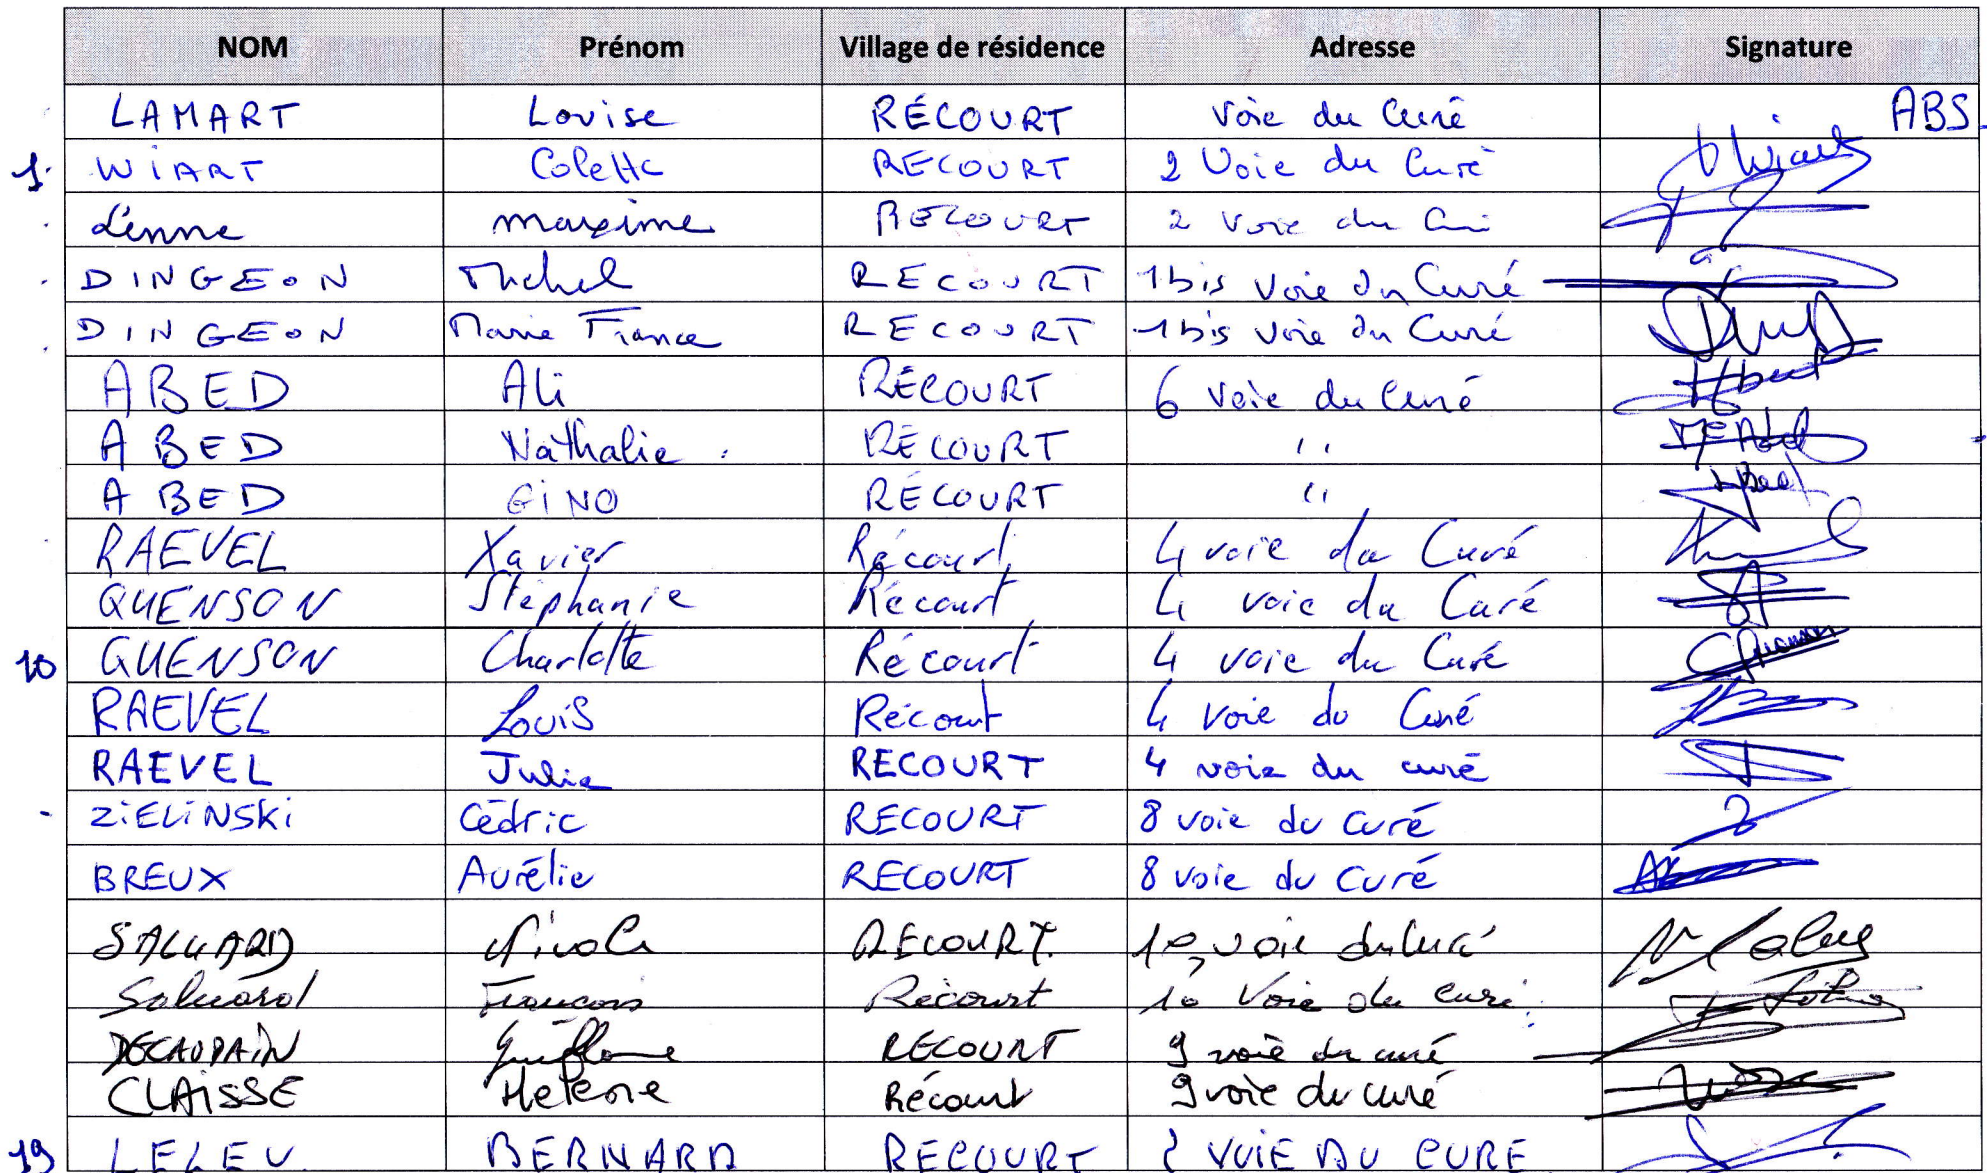 NOM Prénom Village de résidence Adresse Signature
LAMART Louise RÉCOURT Voie du Curé ABS
1. WIART Colette RECOURT 2 Voie du Curé
Lenne maxime RECOURT 2 Voie du
DINGEON Michel RECOURT 1bis Voie du Curé
DINGEON Marie France RECOURT 1bis Voie du Curé
ABED Ali RÉCOURT 6 Voie du Curé
ABED Nathalie RÉCOURT ''
ABED GINO RÉCOURT ''
RAEVEL Xavier Récourt 4 voie du Curé
QUENSON Stéphanie Récourt 4 voie du Curé
10 QUENSON Charlotte Récourt 4 voie du Curé
RAEVEL Louis Récourt 4 Voie du Curé
RAEVEL Julie RECOURT 4 voie du curé
ZIELINSKI Cédric RECOURT 8 voie du curé
BREUX Aurélie RECOURT 8 voie du curé
SALUARD Nicole RECOURT. 10 voie du Curé
Saluard François Récourt 10 Voie du curé
DECAUDAIN Guillaume RECOURT 9 voie du curé
CLAISSE Hélène Récourt 9 voie du curé
19 LELEU BERNARD RECOURT VOIE DU CURE